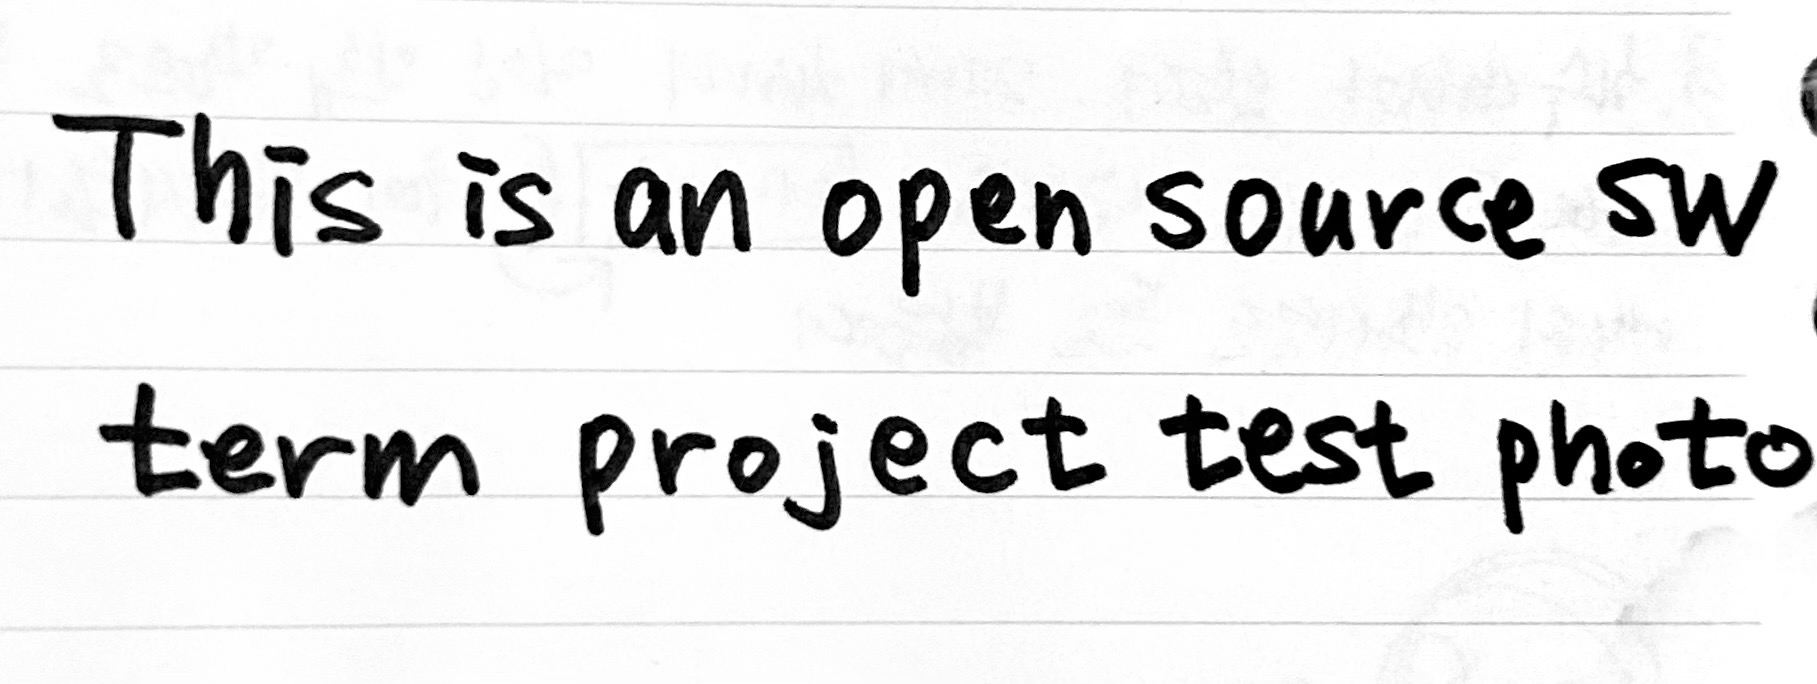 This is an open source SW
term project test photo